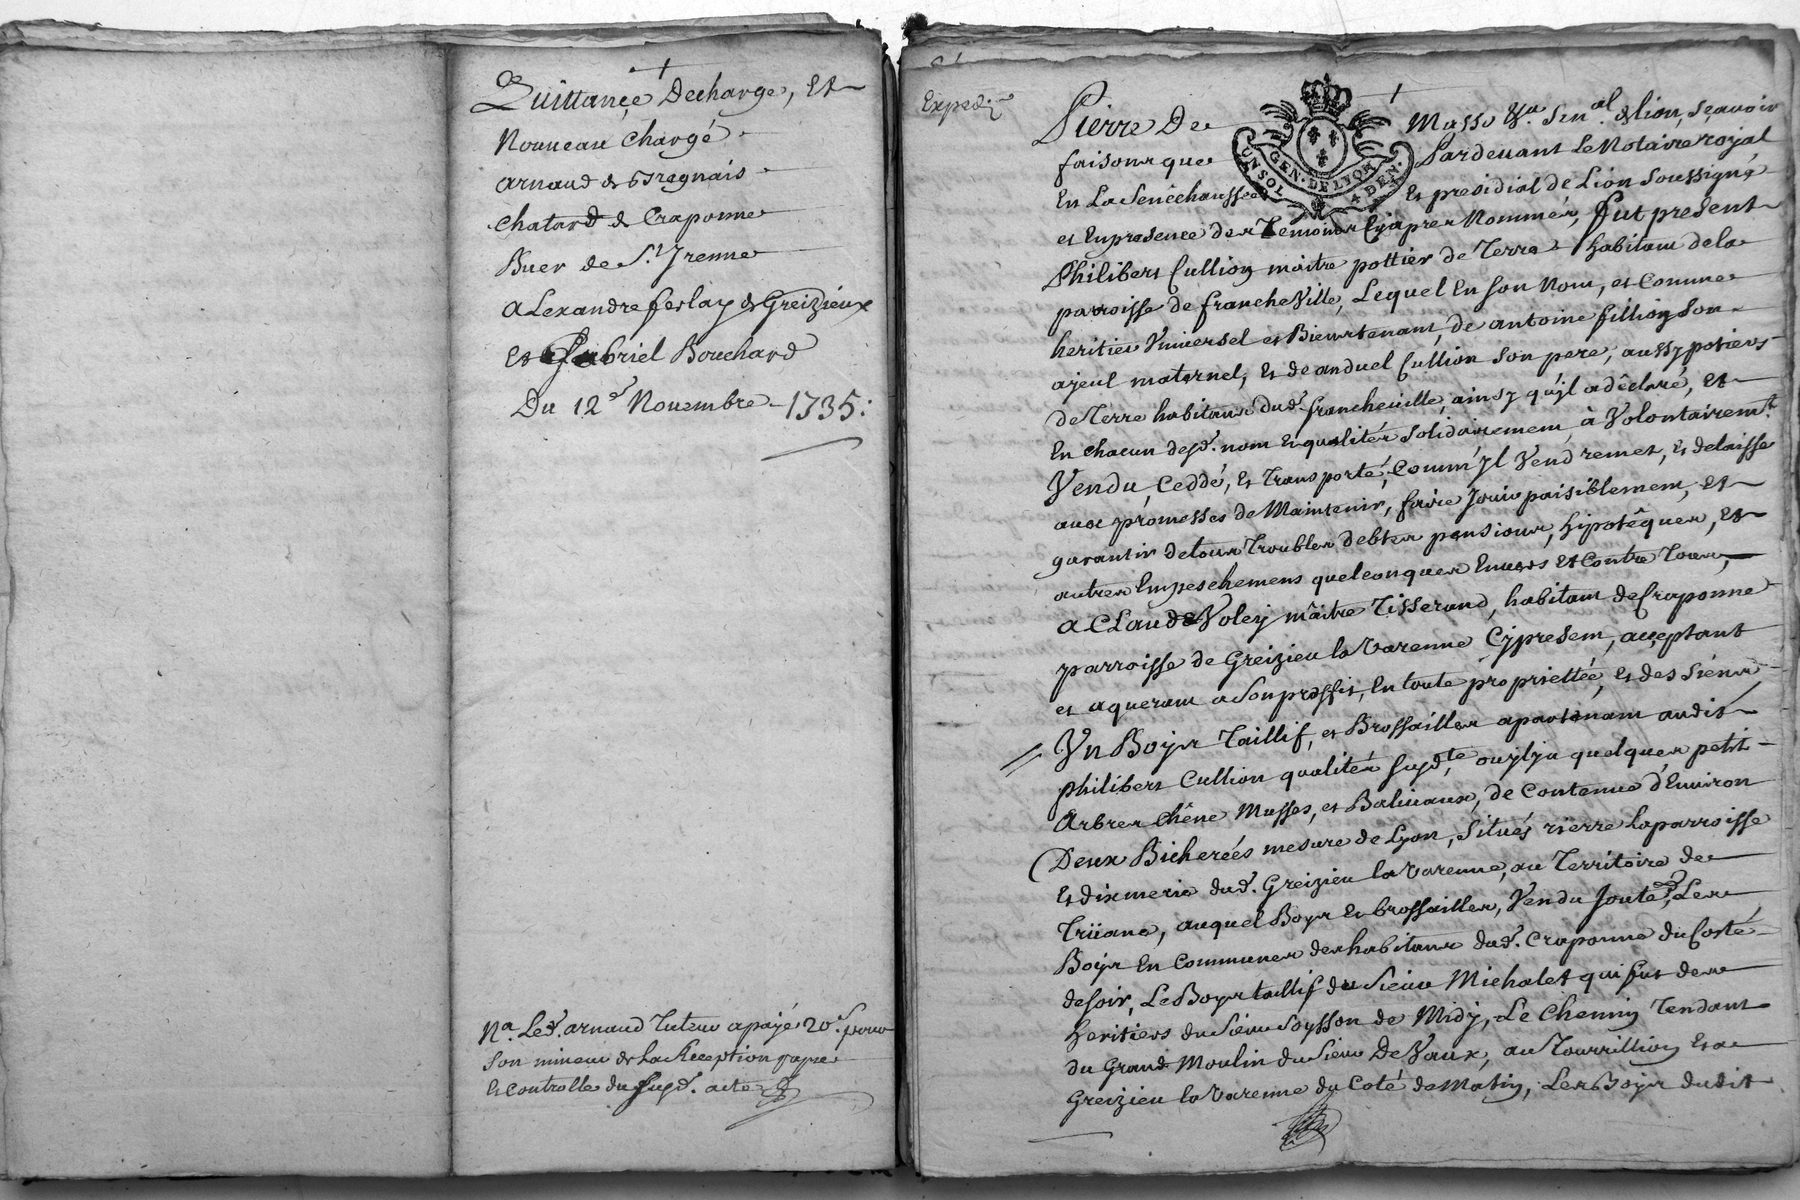 Quittance Decharge, Et
Nouveau Chargé
Arnaud de Bregnais
Chatard de Craponne
Buer de St. Yrenne
Alexandre ferlay de Greizieux
Et Gabriel Bouchard
Du 12e Novembre 1735:
Na. Led. arnaud Tuteur a payé 20s. pour
son mineur de la Reception papier
Et controlle du susd. acte
Expedié
Pierre De Masso &a. Senal. de lion, sçavoir
faisons que Pardevant Le Notaire royal
En La Senéchaussée Et presidial de Lion soussigné
et En presence des Temoins Cy apres Nommés, fut present
Philibert Cullion maitre pottier de Terre habitant de la
parroisse de francheville, Lequel En son Nom, et Comme
heritier Universel et Bientenant, de antoine fillion son
ajeul maternel, Et de Cullion son pere, aussy potiers
de Terre habitans dud. francheville, ainsy qu'jl a dêclaré, Et
En chacun desd. nom Et qualités solidairement, à Volontairemt.
Vendu, Ceddé, Et Transporté, Comm'jl Vend remet, Et delaisse
avec promesses de Maintenir, faire Jouir paisiblement, Et
garantir de tous Troubles debtes pensions, hipotêques, Et
autres Empeschemens quelconques Envers Et Contre Tous,
a CLaude Voley mâitre Tisserand, habitant de Craponne
parroisse de Greizieu la Varenne Cy present, acceptant
et aquerant a son proffit, En toute propriettée, Et des siens
Un Boys Taillif, et Brossailles apartenant audit
Philibert Cullion qualités susdte, ou jl ja quelques petit
Arbres chêne Musses, et Baliveaux, de Contenue d'Environ
Deux Bicherées mesure de Lyon, situés rierre La parroisse
Et dixmerie dud. Greizieu la Varenne, au Territoire de
Trüane, auquel Boys Et brossailles, Vendu Joute, Les
Boys En Communes des habitans dud. Craponne du Costé
de soir, Le Boys taillif du sieur Michalet qui fut des
Heritiers du sieur Soysson de Midy, Le Chemin Tendant
du Grand Moulin du sieur De Vaux, au Tourrillion Et a
Greizieu la Varenne du Coté de Matin, Les Boys dudit
GEN. DE LYON
UN SOL 4 DEN.